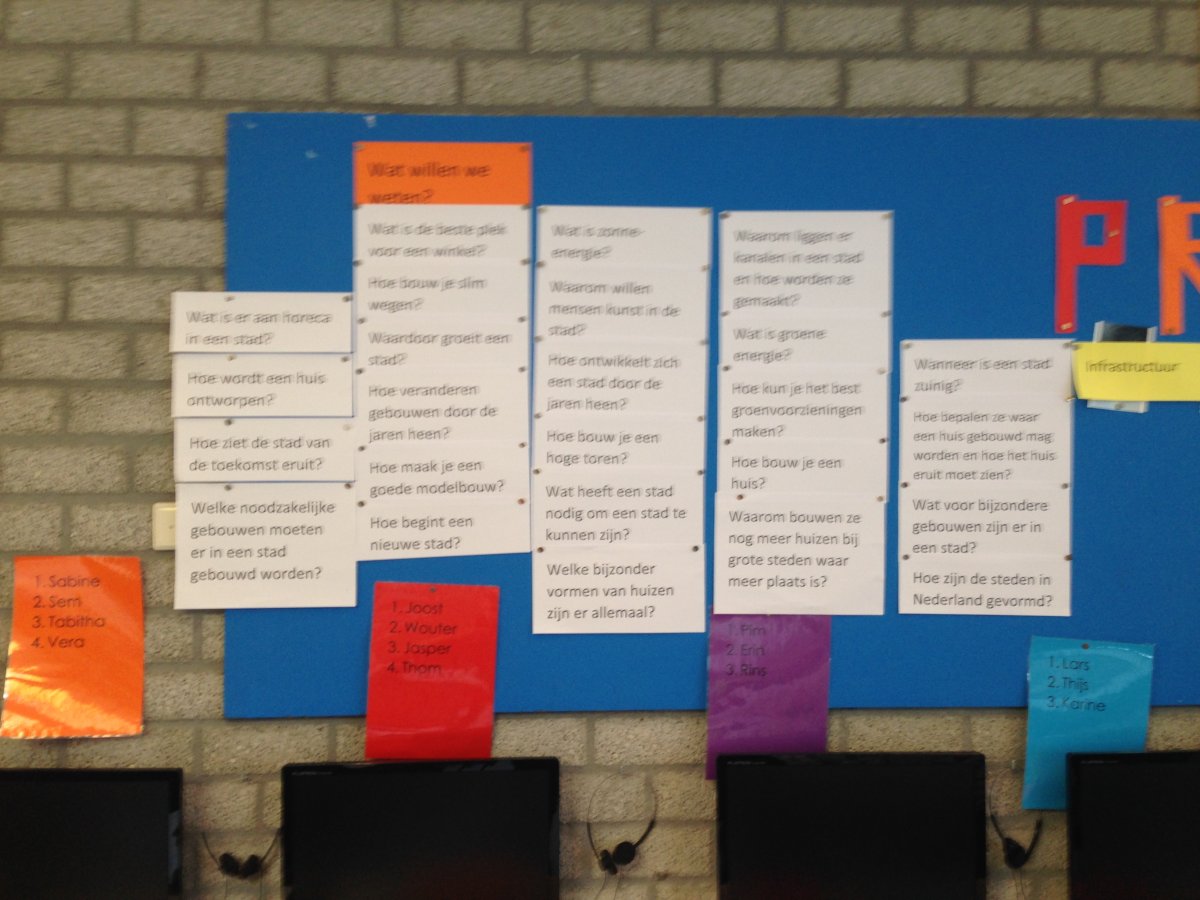 Wat willen we
weten?
Wat is er aan horeca
in een stad?
Hoe wordt een huis
ontworpen?
Hoe ziet de stad van
de toekomst eruit?
Welke noodzakelijke
gebouwen moeten
er in een stad
gebouwd worden?
Wat is de beste plek
voor een winkel?
Hoe bouw je slim
wegen?
Waardoor groeit een
stad?
Hoe veranderen
gebouwen door de
jaren heen?
Hoe maak je een
goede modelbouw?
Hoe begint een
nieuwe stad?
Wat is zonne-
energie?
Waarom willen
mensen kunst in de
stad?
Hoe ontwikkelt zich
een stad door de
jaren heen?
Hoe bouw je een
hoge toren?
Wat heeft een stad
nodig om een stad te
kunnen zijn?
Welke bijzonder
vormen van huizen
zijn er allemaal?
Waarom liggen er
kanalen in een stad
en hoe worden ze
gemaakt?
Wat is groene
energie?
Hoe kun je het best
groenvoorzieningen
maken?
Hoe bouw je een
huis?
Waarom bouwen ze
nog meer huizen bij
grote steden waar
meer plaats is?
Wanneer is een stad
zuinig?
Hoe bepalen ze waar
een huis gebouwd mag
worden en hoe het huis
eruit moet zien?
Wat voor bijzondere
gebouwen zijn er in
een stad?
Hoe zijn de steden in
Nederland gevormd?
PR
Infrastructuur
1. Sabine
2. Sem
3. Tabitha
4. Vera
1. Joost
2. Wouter
3. Jasper
4. Thom
1. Pim
2. Erin
3. Rins
1. Lars
2. Thijs
3. Karine